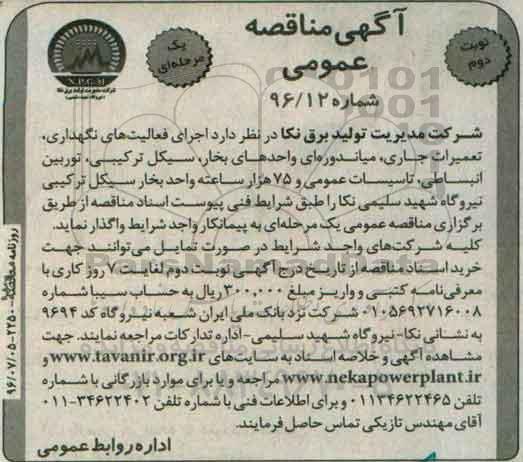 آگهی مناقصه
عمومی
شماره ۹۶/۱۲
نوبت
دوم
یک
مرحله‌ای
N.P.G.M
شرکت مدیریت تولید برق نکا
شرکت مدیریت تولید برق نکا در نظر دارد اجرای فعالیت‌های نگهداری،
تعمیرات جاری، میاندوره‌ای واحدهای بخار، سیکل ترکیبی، توربین
انبساطی، تاسیسات عمومی و ۷۵ هزار ساعته واحد بخار سیکل ترکیبی
نیروگاه شهید سلیمی نکا را طبق شرایط فنی پیوست اسناد مناقصه از طریق
برگزاری مناقصه عمومی یک مرحله‌ای به پیمانکار واجد شرایط واگذار نماید.
کلیه شرکت‌های واجد شرایط در صورت تمایل می‌توانند جهت
خرید اسناد مناقصه از تاریخ درج آگهی نوبت دوم لغایت ۷ روز کاری با
معرفی‌نامه کتبی و واریز مبلغ ۳۰۰,۰۰۰ ریال به حساب سیبا شماره
۰۱۰۵۶۹۲۷۱۶۰۰۸ شرکت نزد بانک ملی ایران شعبه نیروگاه کد ۹۶۹۴
به نشانی نکا-نیروگاه شهید سلیمی-اداره تدارکات مراجعه نمایند. جهت
مشاهده آگهی و خلاصه اسناد به سایت‌های www.tavanir.org.ir و
www.nekapowerplant.ir مراجعه و یا برای موارد بازرگانی با شماره
تلفن ۰۱۱۳۴۶۲۲۴۶۵ و برای اطلاعات فنی با شماره تلفن ۳۴۶۲۲۴۰۲-۰۱۱
آقای مهندس تازیکی تماس حاصل فرمایند.
اداره روابط عمومی
ParsNamadData
۹۶/۰۷/۰۵-۲۲۵۰